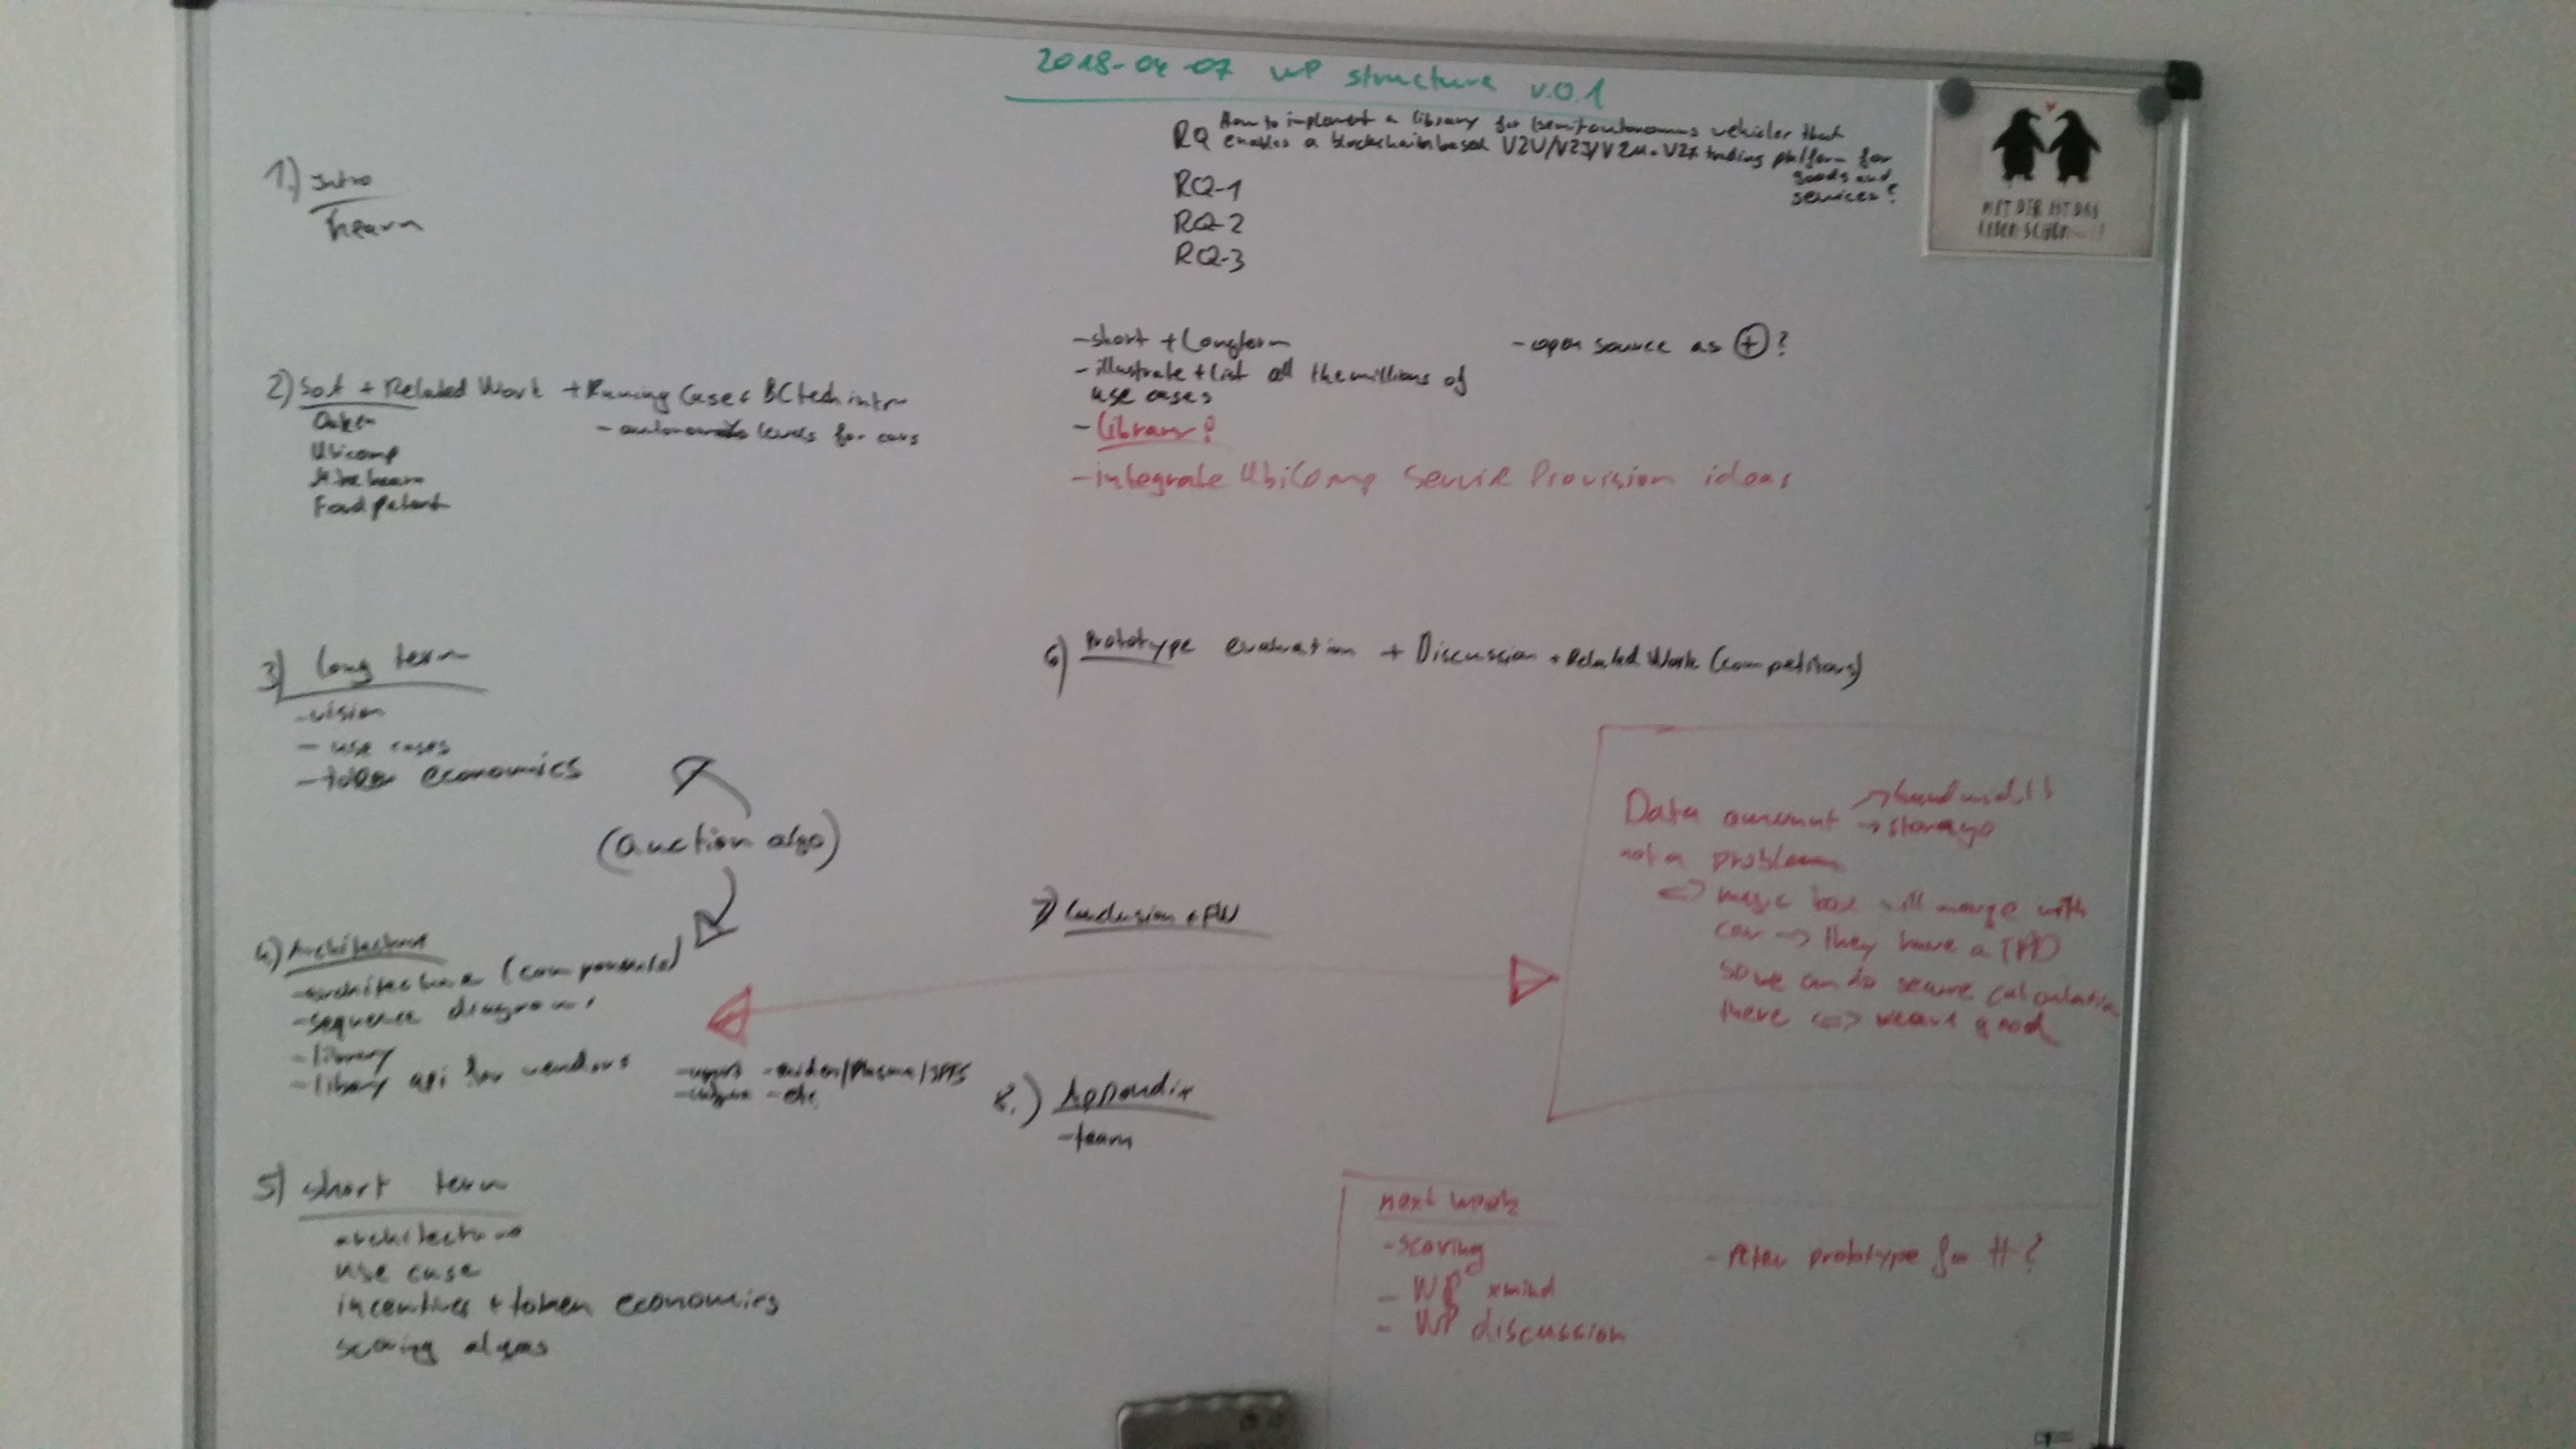 2018-04-07 WP structure v.0.1
RQ How to implement a library for (semi)autonomous vehicles that
enables a blockchainbased V2V/V2I/V2M. V2X trading platform for
goods and
services?
RQ-1
RQ-2
RQ-3
1.) Intro
hearn
2) SotA + Related Work + Running Case + BC tech intro
- levels for cars
Ubicomp
Mike hearn
Ford patent
- short + Longterm
- illustrate + list all the millions of
use cases
- Library?
- integrate UbiComp Service Provision ideas
- open source as + ?
MIT DIR IST DAS
LEBEN SCHÖN
3) long term
- vision
- use cases
- token economics
(auction algo)
4.) Architecture
- architecture (components)
- sequence diagrams
- library
- library api for vendors
- raiden/Plasma/IPFS
- etc.
5) short term
architecture
use case
incentives + token economics
scoring algos
6) Prototype evaluation + Discussion + Related Work (competitors)
7) Conclusion + FW
8.) Appendix
- team
Data amount → bandwidth
→ storage
not a problem
=> magic box will merge with
car → they have a
so we can do secure calculation
there <=> good
next week
- scoring
- WP xmind
- WP discussion
- prototype for H?